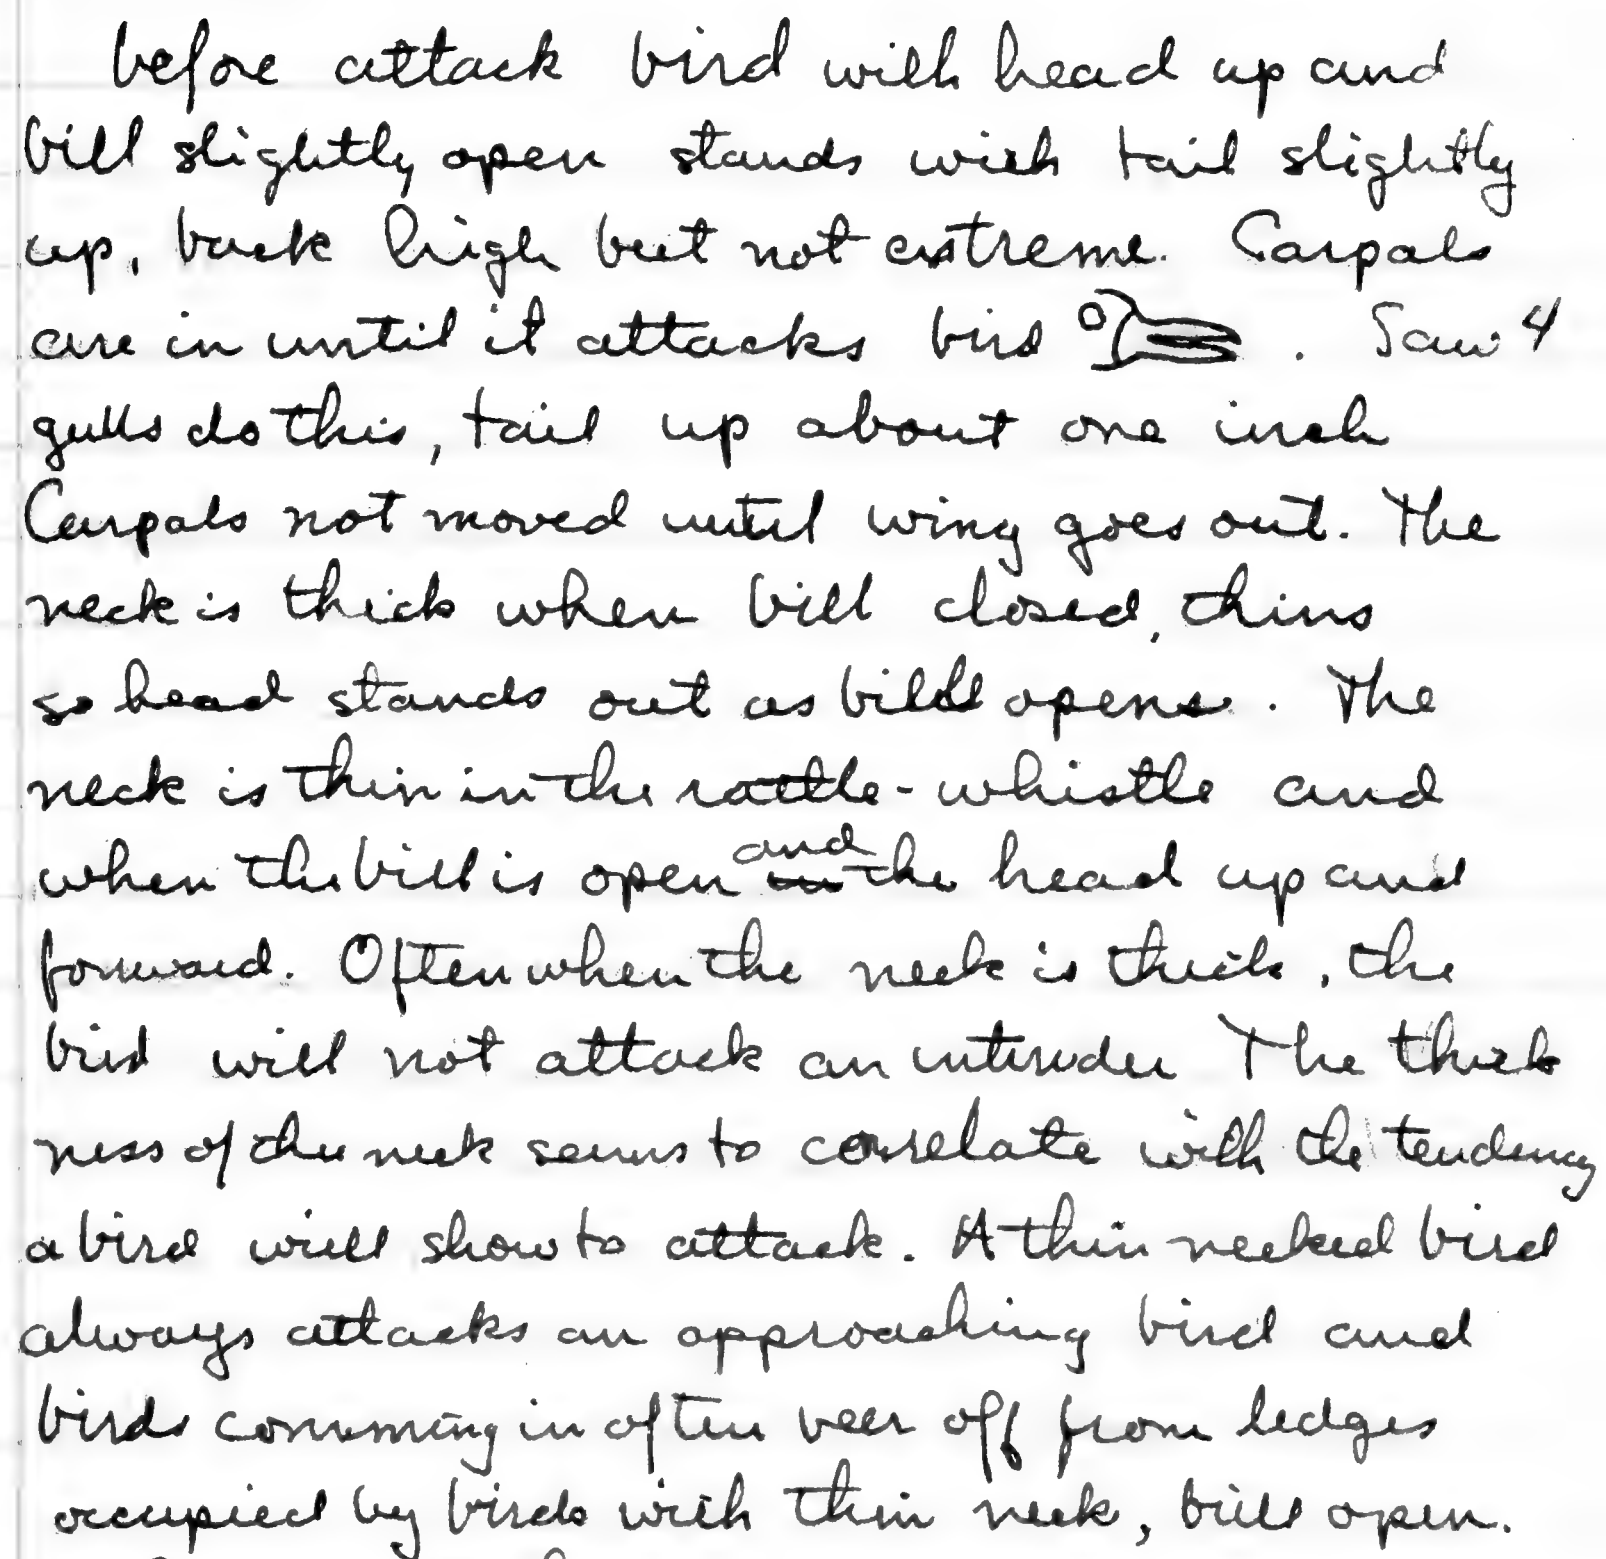 before attack bird with head up and
bill slightly open stands with tail slightly
up, back high but not extreme. Carpals
are in until it attacks bird . Saw 4
gulls do this, tail up about one inch
Carpals not moved until wing goes out. The
neck is thick when bill closed, thins
so head stands out as bill opens. The
neck is thin in the rattle-whistle and
when the bill is open and the head up and
forward. Often when the neck is thick, the
bird will not attack an intruder The thick
ness of the neck seems to correlate with the tendency
a bird will show to attack. A thin necked bird
always attacks an approaching bird and
birds comming in often veer off from ledges
occupied by birds with thin neck, bill open.